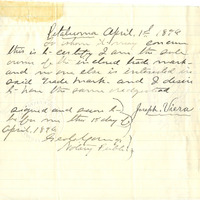 Petaluma April. 1st 1894
To whom it may concern
this is to certify I am the sole
owner of the inclosed trade mark
and no one else is interested in
said Trade mark and I desire
to have the same registered
Joseph. Viera
signed and sworn to
before me this 1st day of
April. 1894
Notary Public